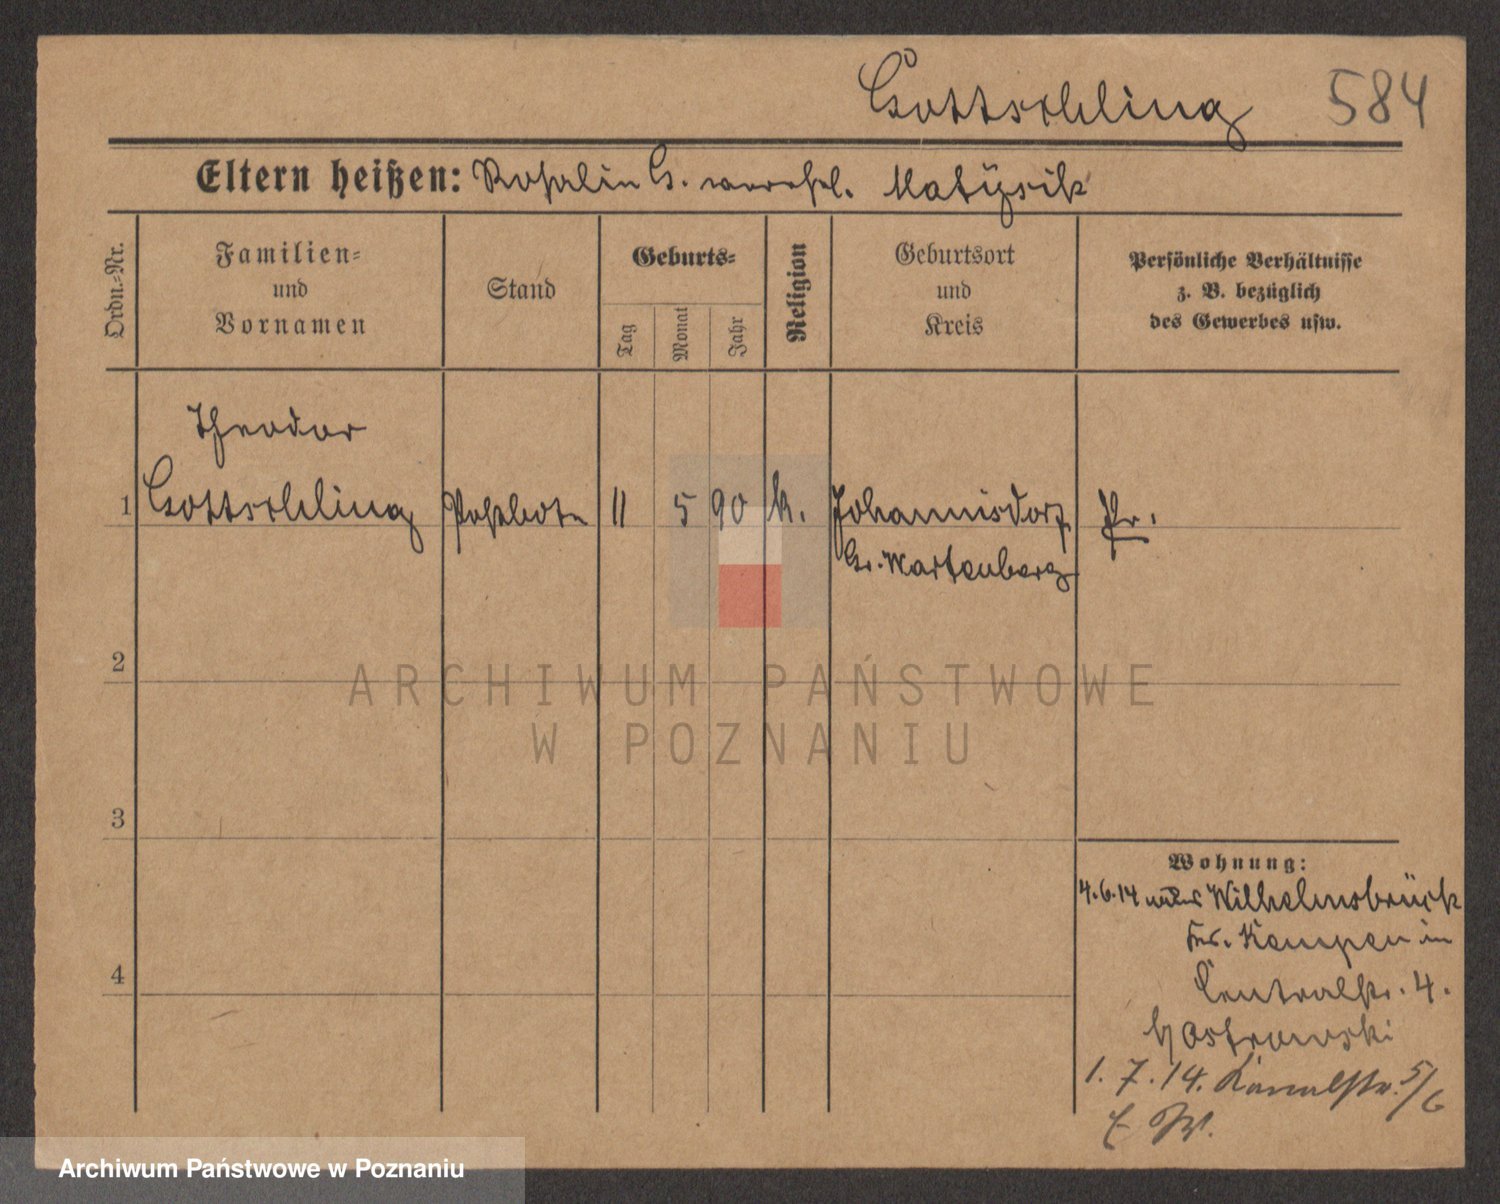 Gottschling 584
Eltern heißen: Rosalin G. verehel. Matÿsik
Ordn.=Nr.
Familien=
und
Vornamen
Stand
Geburts=
Tag
Monat
Jahr
Religion
Geburtsort
und
Kreis
Persönliche Verhältnisse
z. B. bezüglich
des Gewerbes usw.
Theodor
1 Gottschling Postbote 11 5 90 k. Johannisdorf Pr.
Gr. Wartenberg
2
3
4
Wohnung:
4.6.14 Wilhelmsbrück
Kempen in
Centralstr. 4.
b/ Ostrowski
1.7.14. Kanalstr. 5/6
W.
ARCHIWUM PAŃSTWOWE
W POZNANIU
Archiwum Państwowe w Poznaniu